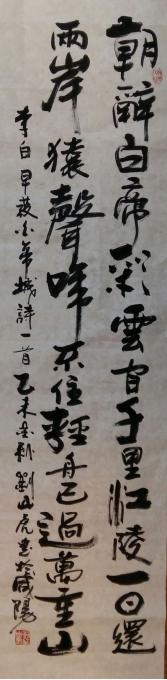 朝辭白帝彩雲間千里江陵一日還
兩岸猿聲啼不住輕舟已過萬重山
李白早發白帝城詩一首乙未冬初劉山虎書於咸陽